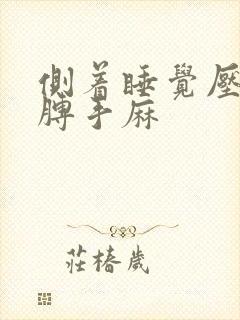 側着睡覺壓
膊手麻
莊椿歲